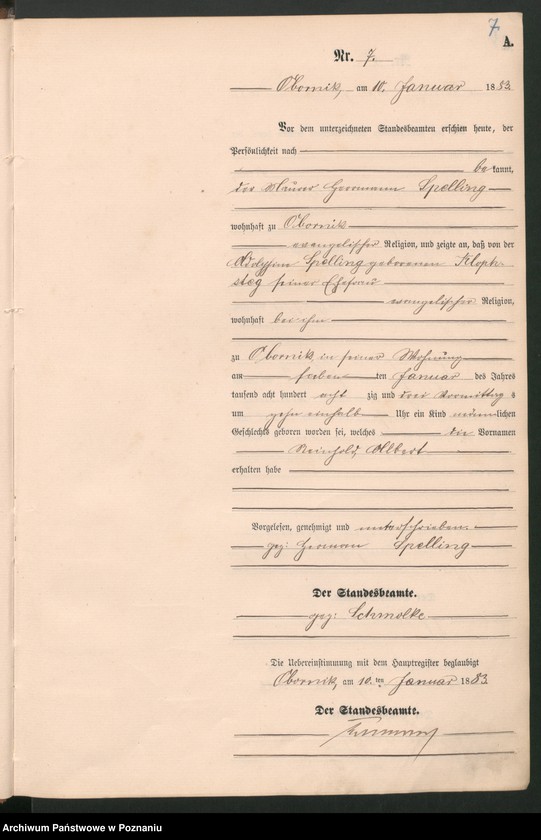 7
A.
Nr. 7.
Obornik, am 10. Januar 1883
Vor dem unterzeichneten Standesbeamten erschien heute, der
Persönlichkeit nach
bekannt,
der Maurer Herrmann Spelling
wohnhaft zu Obornik
evangelischer Religion, und zeigte an, daß von der
Spelling geborenen Kloph-
steg seiner Ehefrau
evangelischer Religion,
wohnhaft bei ihm
zu Obornik, in seiner Wohnung
am sieben ten Januar des Jahres
tausend acht hundert acht zig und drei Vormittags
um zehn einhalb Uhr ein Kind männlichen
Geschlechts geboren worden sei, welches die Vornamen
Reinhold, Albert
erhalten habe
Vorgelesen, genehmigt und unterschrieben.
gez: Herman Spelling
Der Standesbeamte.
gez: Schmolke
Die Uebereinstimmung mit dem Hauptregister beglaubigt
Obornik, am 10.ten Januar 1883.
Der Standesbeamte.
Archiwum Państwowe w Poznaniu